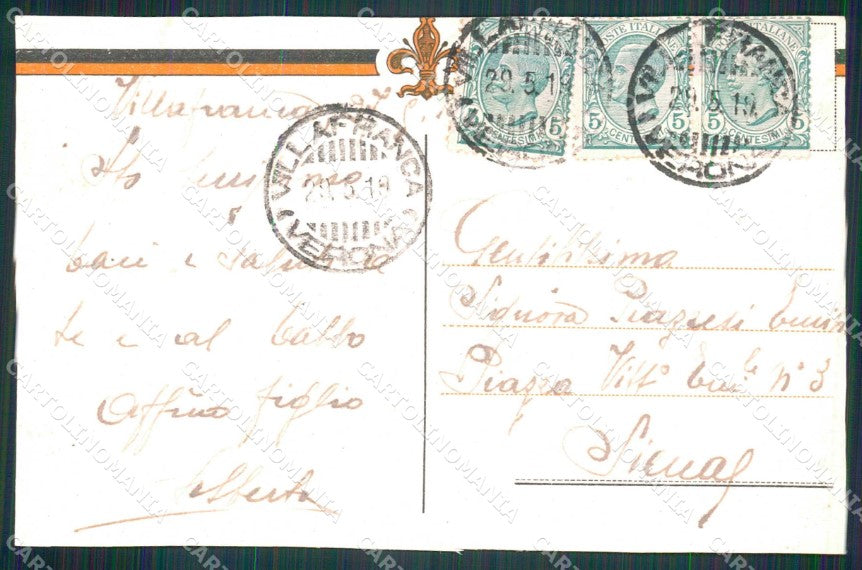 Villafranca
baci e saluti a
te e al babbo
Affmo figlio
Alberto
VILLAFRANCA
29.5.19
(VERONA)
VILLAFRANCA
29.5.19
VERONA
VILLAFRANCA
29.5.19
VERONA
5 CENTESIMI 5
POSTE ITALIANE
5 CENTESIMI 5
POSTE ITALIANE
5 CENTESIMI 5
Gentilissima
Signora
Piazza Vitt° Em.le n° 3
Siena
CARTOLINOMANIA